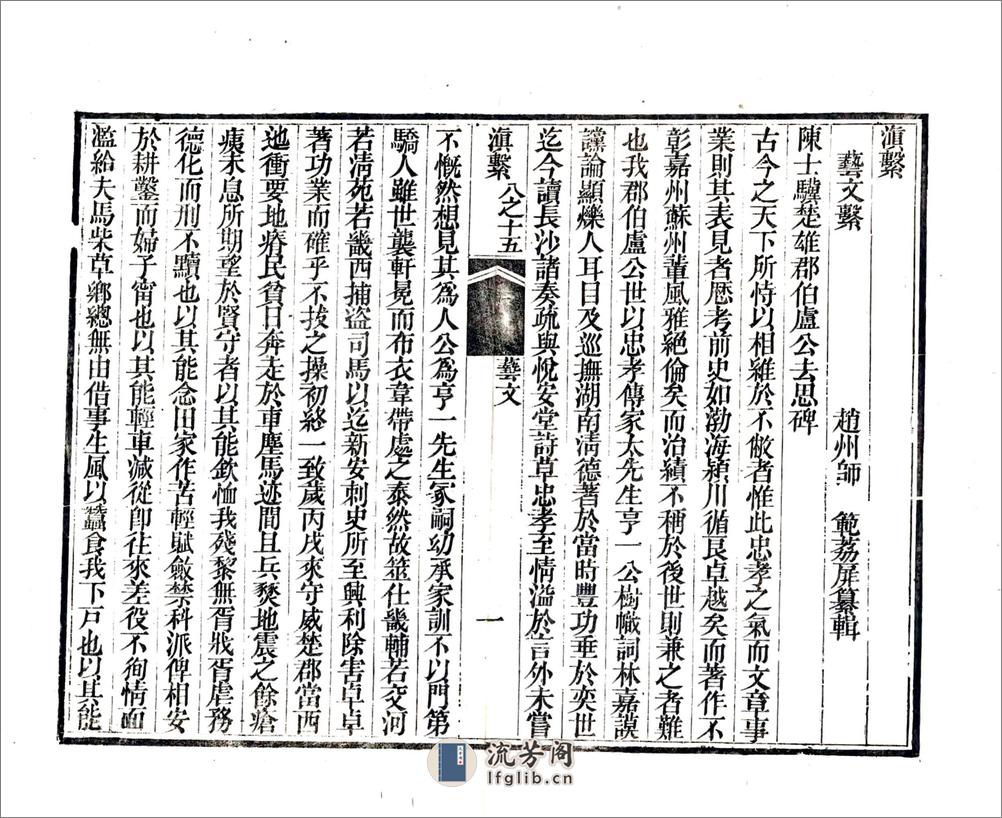 滇繫
藝文繫
趙州師　範荔扉纂輯
陳士驥楚雄郡伯盧公去思碑
古今之天下所恃以相維於不敝者惟此忠孝之氣而文章事
業則其表見者歷考前史如渤海潁川循良卓越矣而著作不
彰嘉州蘇州輩風雅絕倫矣而治績不稱於後世則兼之者難
也我郡伯盧公世以忠孝傳家太先生亨一公樹幟詞林嘉謨
讜論顯爍人耳目及巡撫湖南清德著於當時豐功垂於奕世
迄今讀長沙諸奏疏與悅安堂詩草忠孝至情溢於言外未嘗
滇繫　八之十五　藝文　一
不慨然想見其為人公為亨一先生冢嗣幼承家訓不以門第
驕人雖世襲軒冕而布衣韋帶處之泰然故筮仕畿輔若交河
若清苑若畿西捕盜司馬以迄新安刺史所至興利除害卓卓
著功業而確乎不拔之操初終一致歲丙戌來守威楚郡當西
迆衝要地瘠民貧日奔走於車塵馬迹間且兵燹地震之餘瘡
痍未息所期望於賢守者以其能欽恤我殘黎無胥戕胥虐務
德化而刑不黷也以其能念田家作苦輕賦斂禁科派俾相安
於耕鑿而婦子甯也以其能輕車減從卽往來差役不徇情面
濫給夫馬柴草鄉總無由借事生風以蠶食我下戶也以其能
流芳阁
lfglib.cn